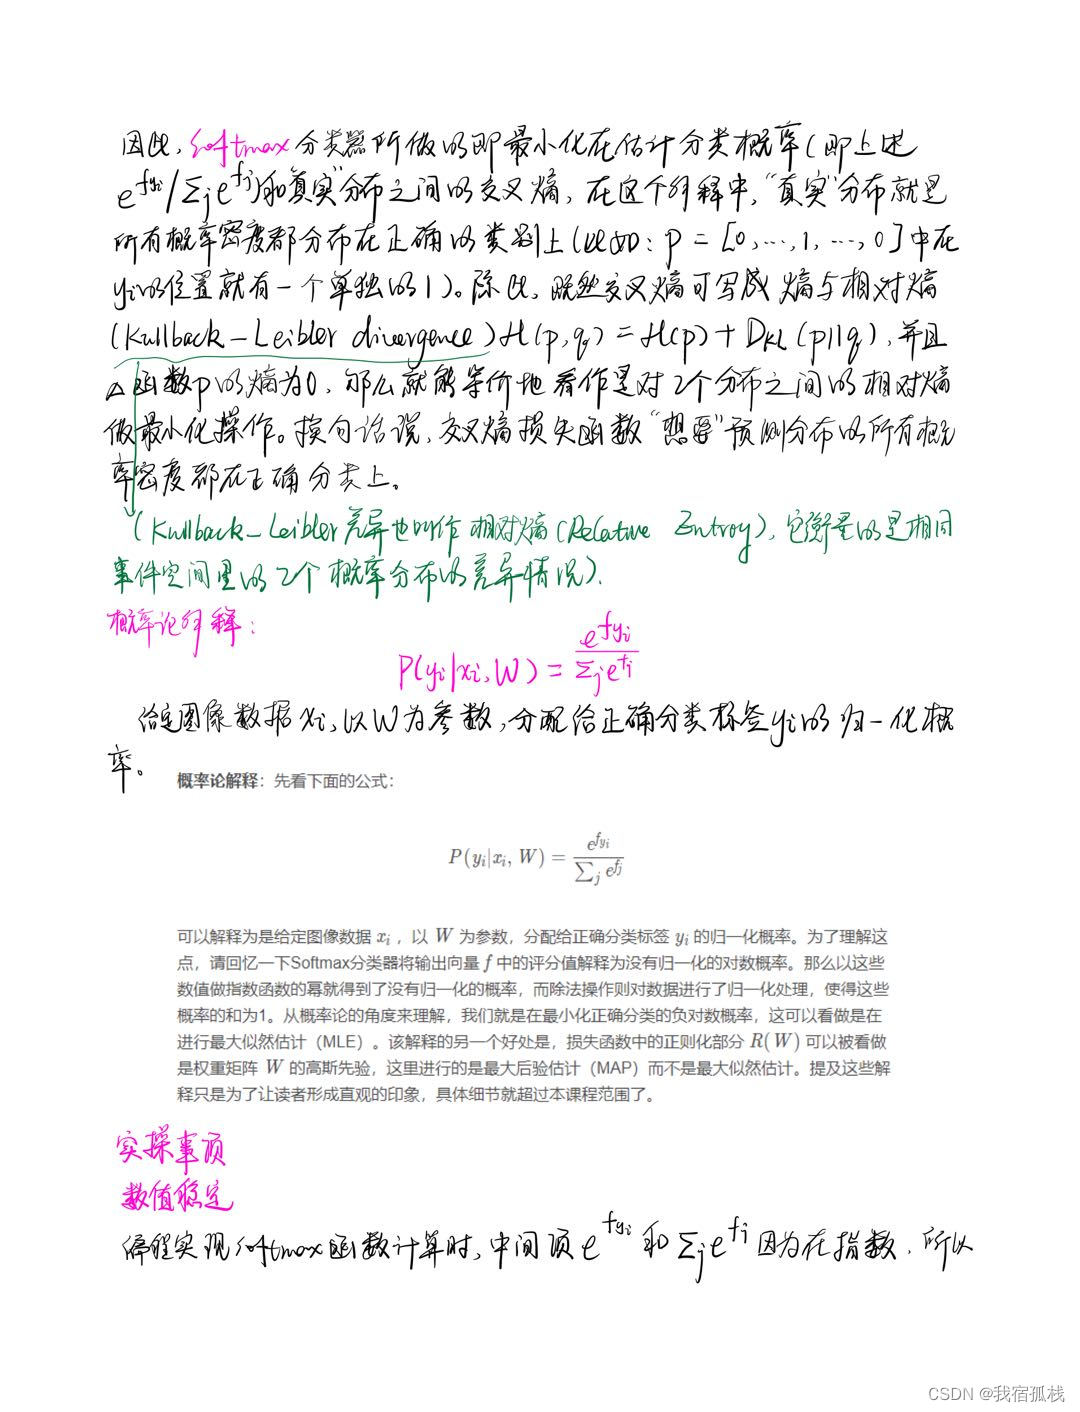 因此, softmax分类器所做的即最小化在估计分类概率(即上述
e^{f_{yi}}/∑_j e^{f_j})和"真实"分布之间的交叉熵, 在这个解释中, "真实"分布就是
所有概率密度都分布在正确的类别上(比如: p = [0,...,1,...,0]中在
yi的位置就有一个单独的1)。除此, 既然交叉熵可写成 熵与相对熵
(Kullback-Leibler divergence) H(p,q) = H(p) + D_{KL}(p||q), 并且
△函数p的熵为0, 那么就能等价地看作是对2个分布之间的相对熵
做最小化操作。换句话说, 交叉熵损失函数"想要"预测分布的所有概
率密度都在正确分类上。
(Kullback-Leibler差异也叫作 相对熵(Relative Entroy), 它衡量的是相同
事件空间里的2个概率分布的差异情况).
概率论解释:
P(yi|xi,W) = \frac{e^{f_{yi}}}{∑_j e^{f_j}}
给定图像数据xi, 以W为参数, 分配给正确分类标签yi的归一化概
率。
概率论解释：先看下面的公式：
P(y_i|x_i, W) = \frac{e^{f_{y_i}}}{∑_j e^{f_j}}
可以解释为是给定图像数据 x_i ，以 W 为参数，分配给正确分类标签 y_i 的归一化概率。为了理解这
点，请回忆一下Softmax分类器将输出向量 f 中的评分值解释为没有归一化的对数概率。那么以这些
数值做指数函数的幂就得到了没有归一化的概率，而除法操作则对数据进行了归一化处理，使得这些
概率的和为1。从概率论的角度来理解，我们就是在最小化正确分类的负对数概率，这可以看做是在
进行最大似然估计（MLE）。该解释的另一个好处是，损失函数中的正则化部分 R(W) 可以被看做
是权重矩阵 W 的高斯先验，这里进行的是最大后验估计（MAP）而不是最大似然估计。提及这些解
释只是为了让读者形成直观的印象，具体细节就超过本课程范围了。
实操事项
数值稳定
编程实现softmax函数计算时, 中间项e^{f_{yi}} 和 ∑_j e^{f_j} 因为存在指数, 所以
CSDN @我宿孤栈